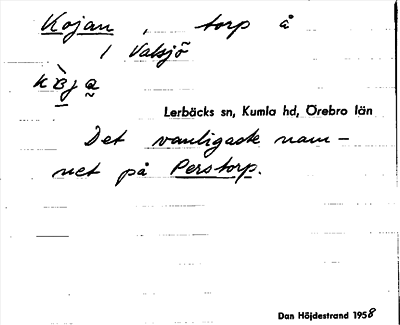 Kojan, torp å
/ Valsjö
kòja
Lerbäcks sn, Kumla hd, Örebro län
Det vanligaste nam-
net på Perstorp.
Dan Höjdestrand 1958